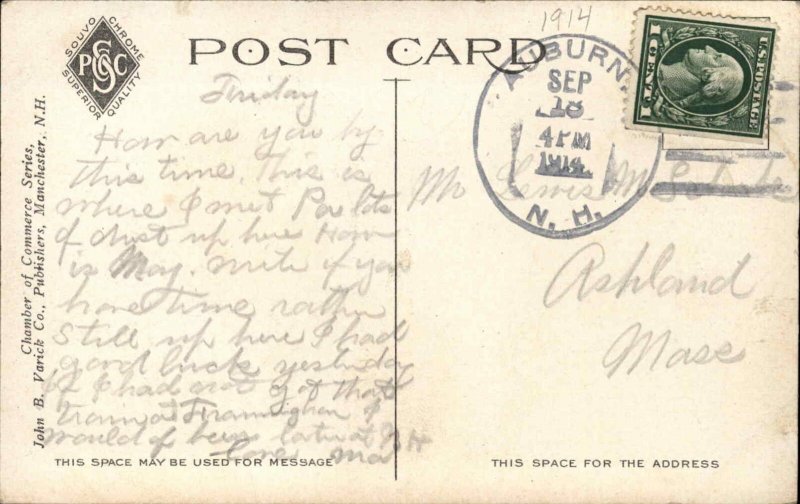 1914
SOUVO CHROME
SUPERIOR QUALITY
PSCC
POST CARD
AUBURN.
SEP
18
4 PM
1914
N. H.
1 CENT 1
U.S. POSTAGE
Chamber of Commerce Series,
John B. Varick Co., Publishers, Manchester, N.H.
Friday
How are you by
this time. This is
where I met Pa lots
of dust up here How
is May. write if you
have time rather
still up here I had
good luck yesterday
if I had not got that
train at Framingham I
would of been late at
Love Ma
Mr Lewis M.
Ashland
Mass
THIS SPACE MAY BE USED FOR MESSAGE
THIS SPACE FOR THE ADDRESS